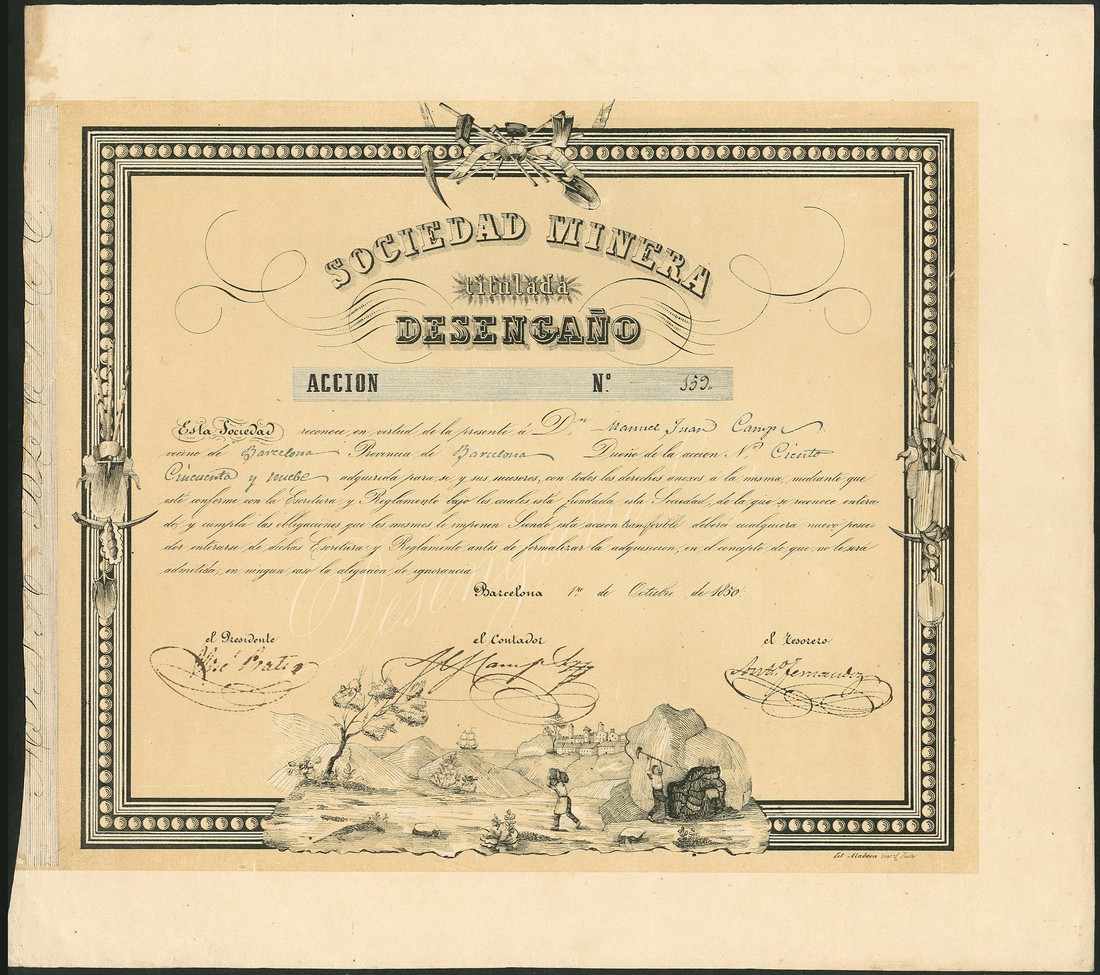 SOCIEDAD MINERA
titulada
DESENGAÑO
ACCION Nº. 159.
Esta Sociedad reconoce en virtud de la presente á Dn. Manuel Juan Camps
vecino de Barcelona Provincia de Barcelona Dueño de la accion Nº. Ciento
Cincuenta y nuebe adquirida para si, y sus sucesores, con todos los derechos anexos á la misma, mediante que
esté conforme con la Escritura y Reglamento bajo los cuales está fundada esta Sociedad, de la que se reconoce entera-
do, y cumpla las obligaciones que los mismos le imponen. Siendo esta accion transferible deberá cualquiera nuevo posee-
dor enterarse de dichas Escritura y Reglamento antes de formalizar la adquisicion, en el concepto de que no le será
admitida, en ningun caso la alegacion de ignorancia.
Barcelona 1º de Octubre de 1850.
el Presidente el Contador el Tesorero
José Prats Antº. Fernandez
Desengaño
Lit. Madera